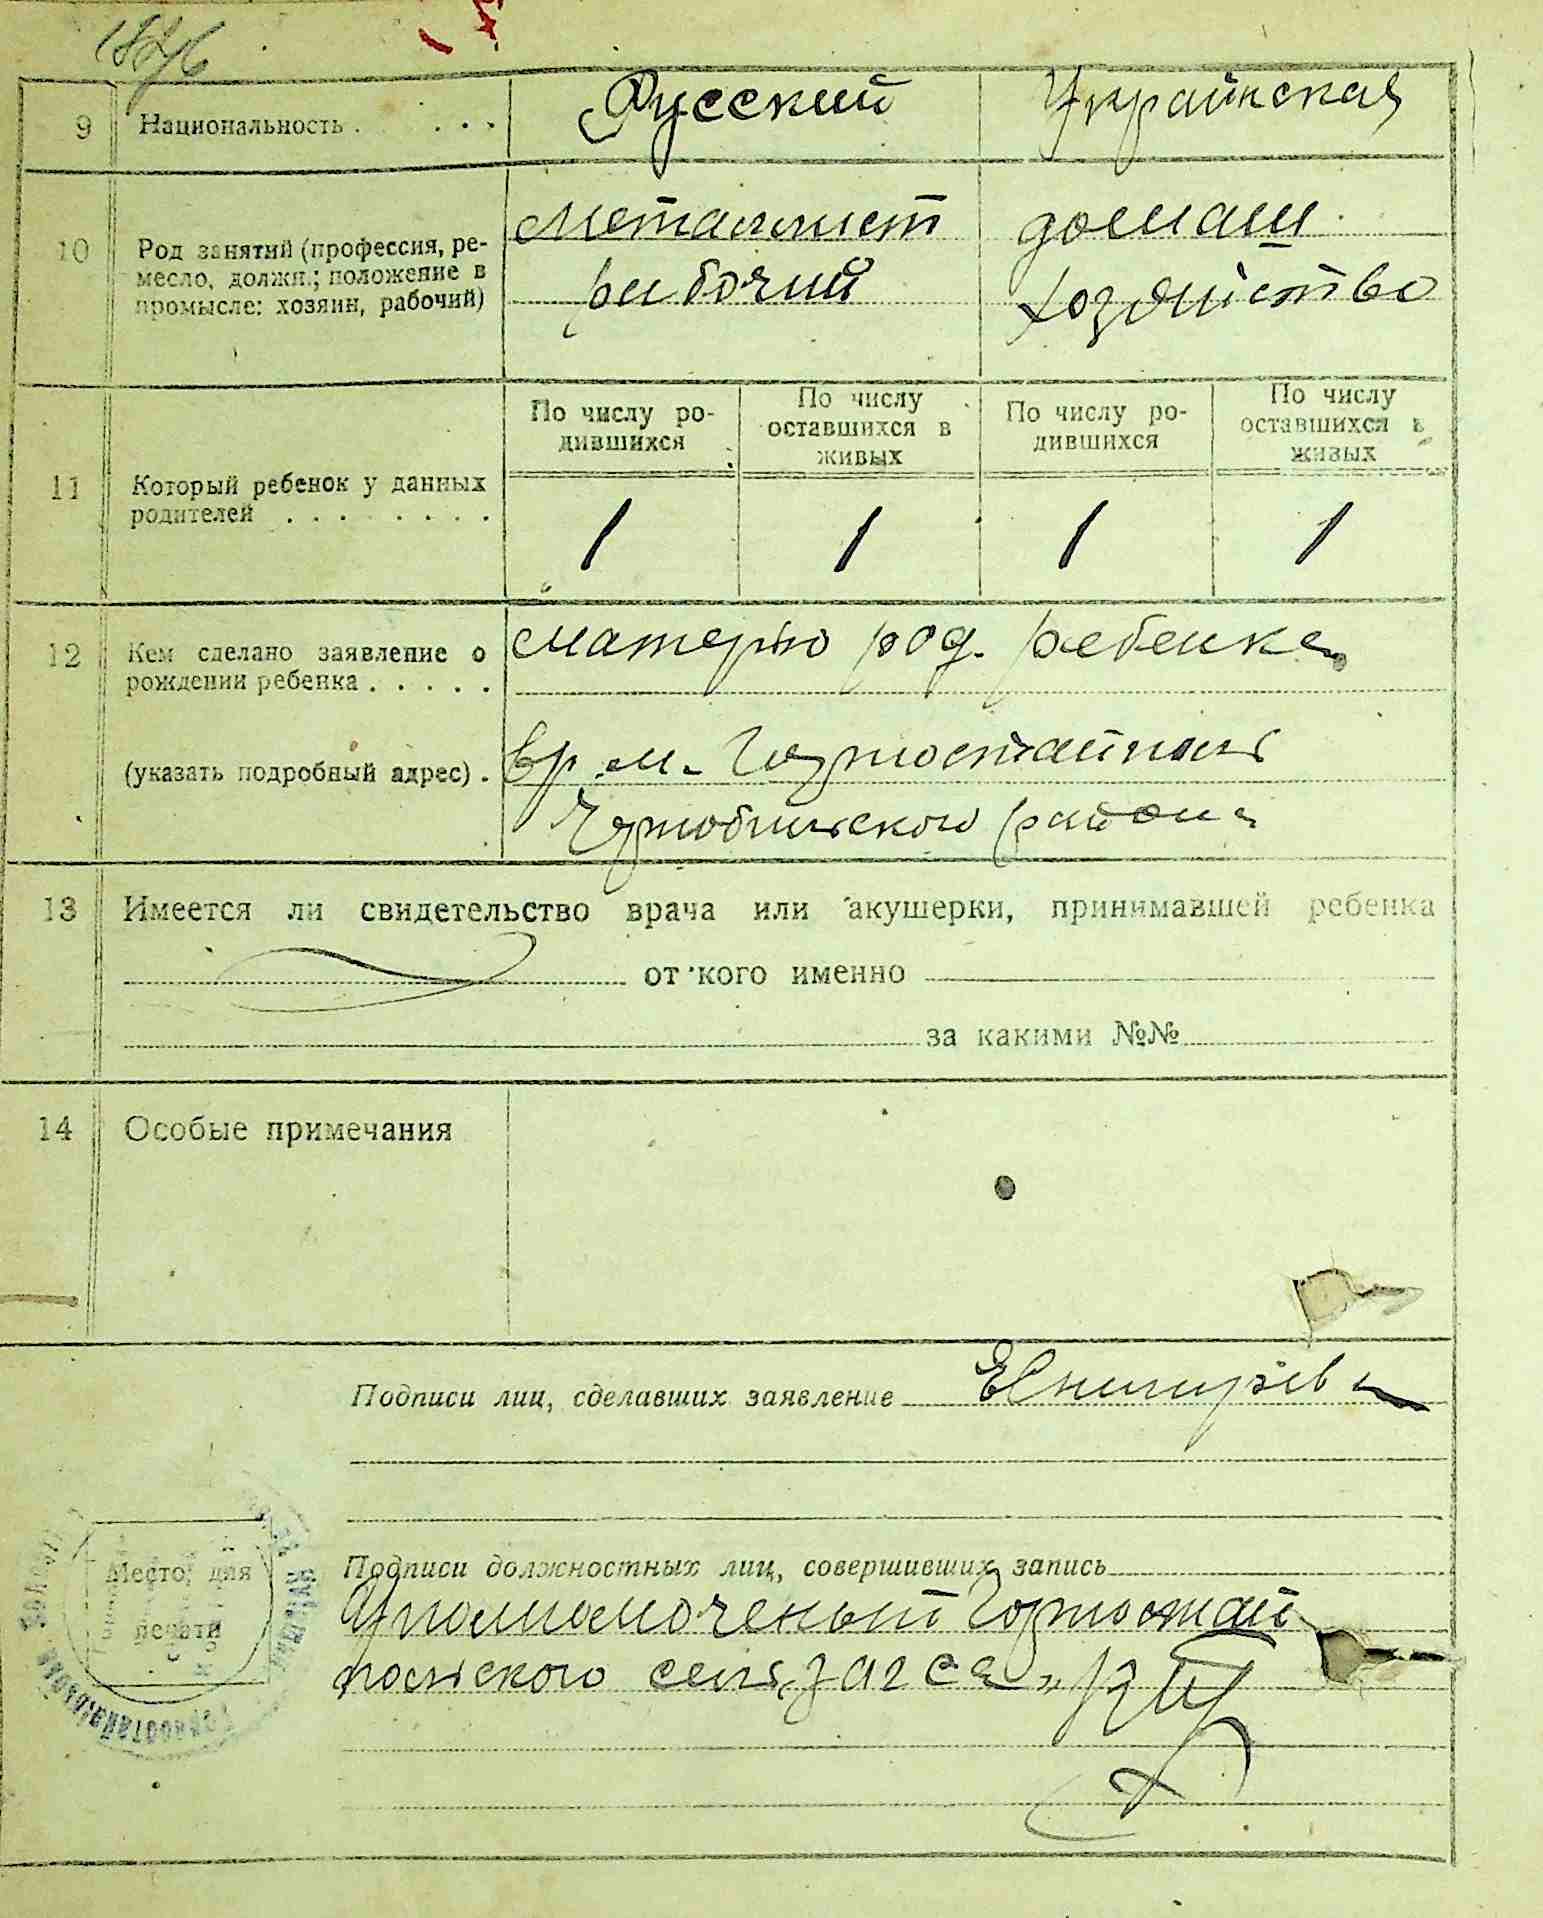 1876
9 Национальность . . . . Русский Украинская
10 Род занятий (профессия, ре-
месло, должн.; положение в
промысле: хозяин, рабочий)
металлист
рабочий
домаш.
хозяйство
11 Который ребенок у данных
родителей . . . . . . . .
По числу ро-
дившихся
По числу
оставшихся в
живых
По числу ро-
дившихся
По числу
оставшихся в
живых
1 1 1 1
12 Кем сделано заявление о
рождении ребенка . . . . .
матерью род. ребенка
(указать подробный адрес) .
вр. м. Горностайполь
Чернобыльского района
13 Имеется ли свидетельство врача или акушерки, принимавшей ребенка
от кого именно
за какими №№
14 Особые примечания
Подписи лиц, сделавших заявление
Подписи должностных лиц, совершивших запись
Уполномоченый Горностай
польского сель „загса"
Место для
печати